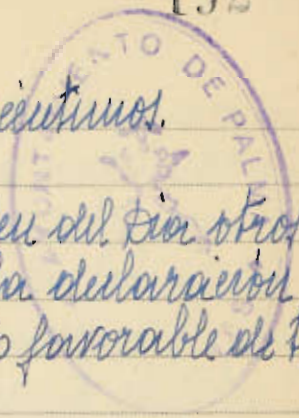 céntimos.
en del Dia otros
la declaración
o favorable de
AYUNTAMIENTO DE PALMA